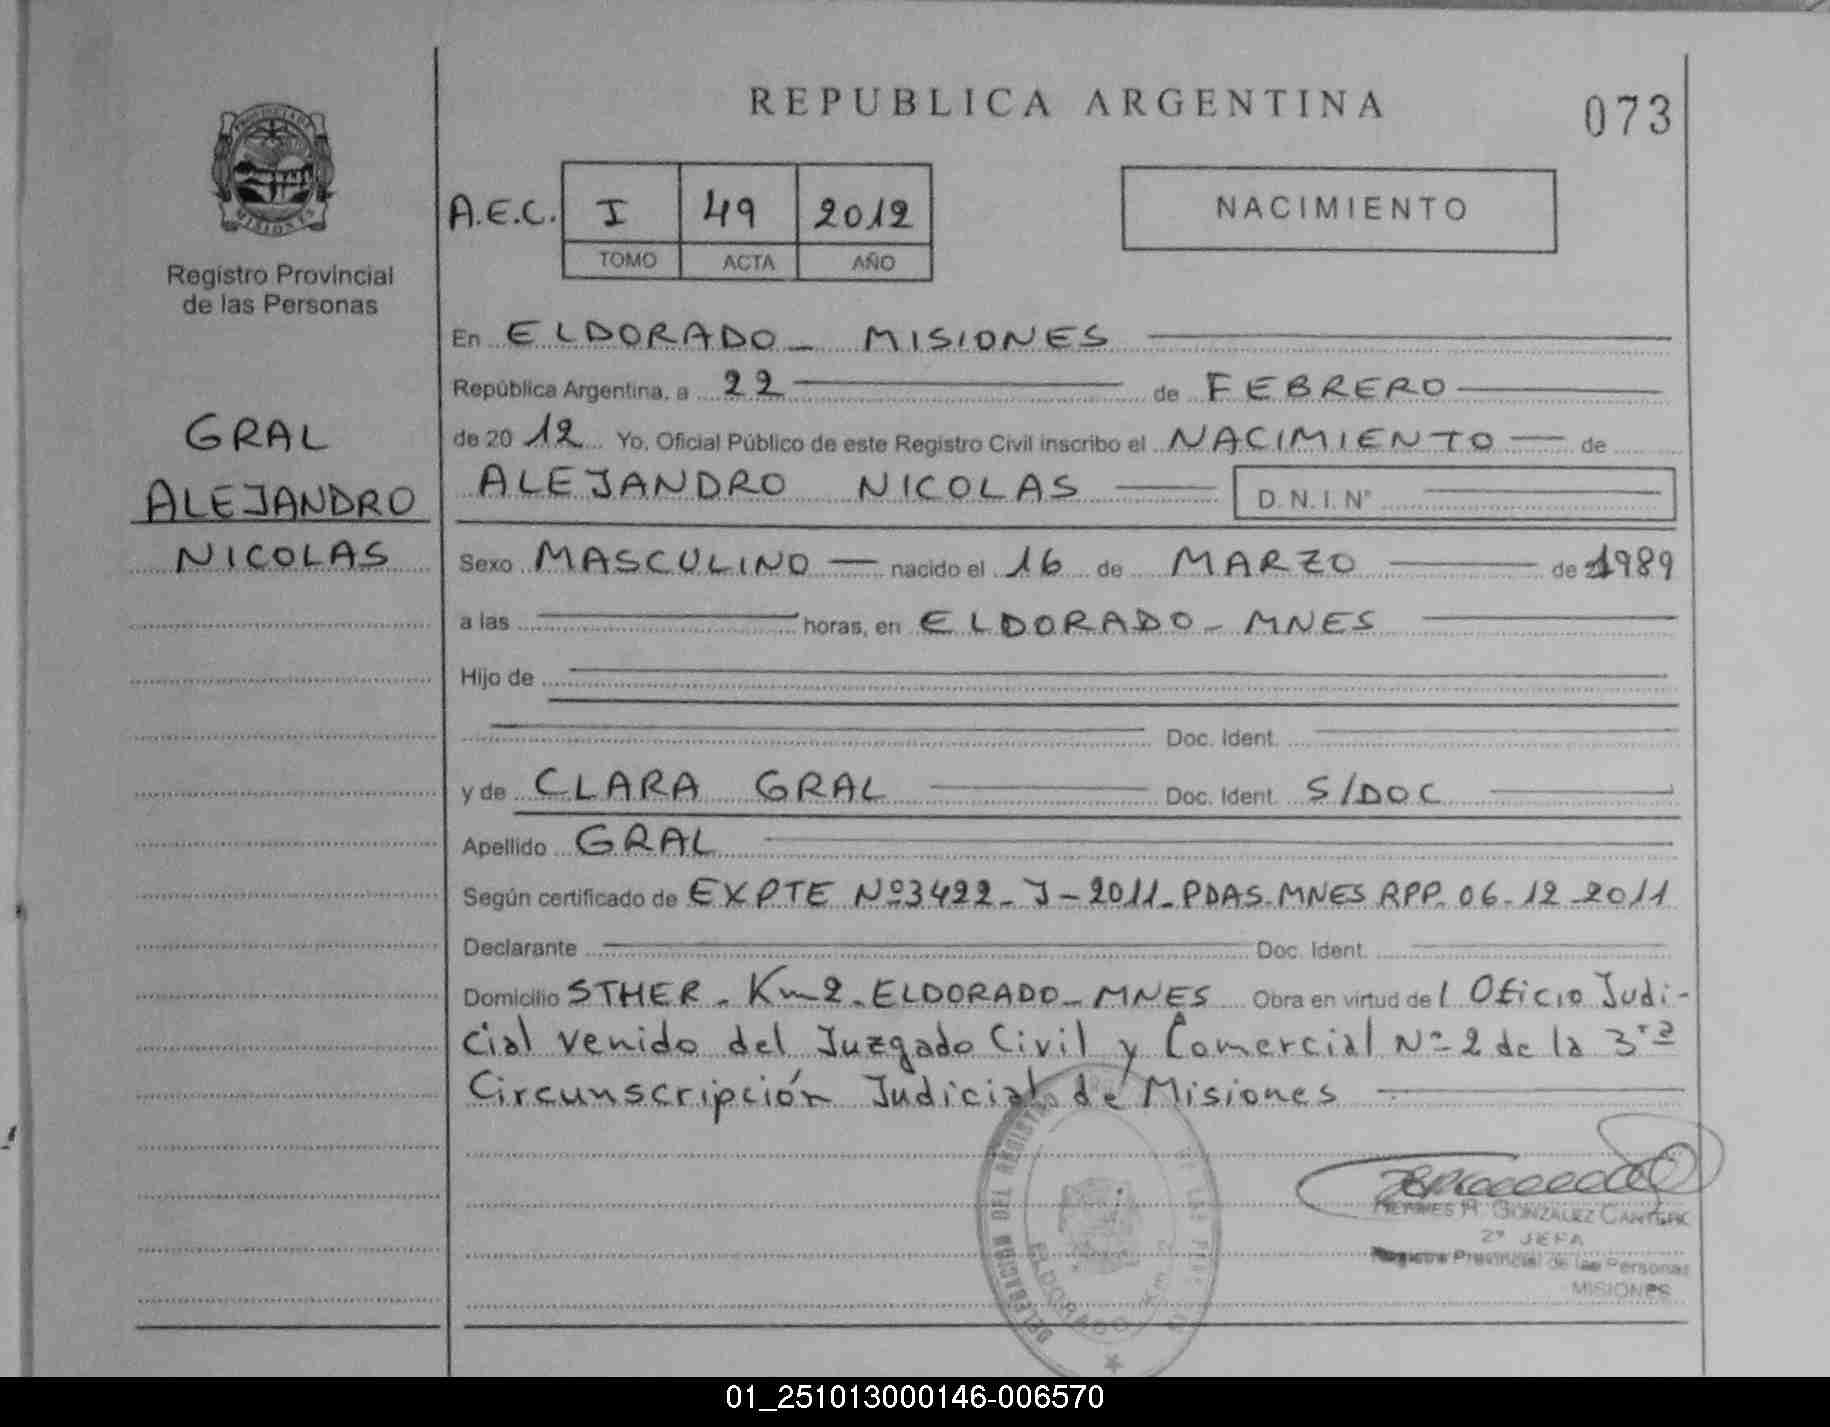 REPUBLICA ARGENTINA
073
PROVINCIA DE
MISIONES
Registro Provincial
de las Personas
GRAL
ALEJANDRO
NICOLAS
A.E.C. I 49 2012
TOMO ACTA AÑO
NACIMIENTO
En ELDORADO - MISIONES
República Argentina, a 22 de FEBRERO
de 20 12 Yo, Oficial Público de este Registro Civil inscribo el NACIMIENTO de
ALEJANDRO NICOLAS D.N.I. N°
Sexo MASCULINO nacido el 16 de MARZO de 1989
a las horas, en ELDORADO - MNES
Hijo de
Doc. Ident.
y de CLARA GRAL Doc. Ident. S/DOC
Apellido GRAL
Según certificado de EXPTE Nº3422-J-2011-PDAS-MNES RPP. 06-12-2011
Declarante Doc. Ident.
Domicilio STHER - Km 2 - ELDORADO - MNES Obra en virtud del Oficio Judi-
cial venido del Juzgado Civil y Comercial Nº 2 de la 3ra
Circunscripción Judicial de Misiones
DELEGACION DEL REGISTRO DE LAS
ELDORADO
HERMES R. GONZALEZ
2º JEFA
Registro Provincial de las Personas
MISIONES
01_251013000146-006570